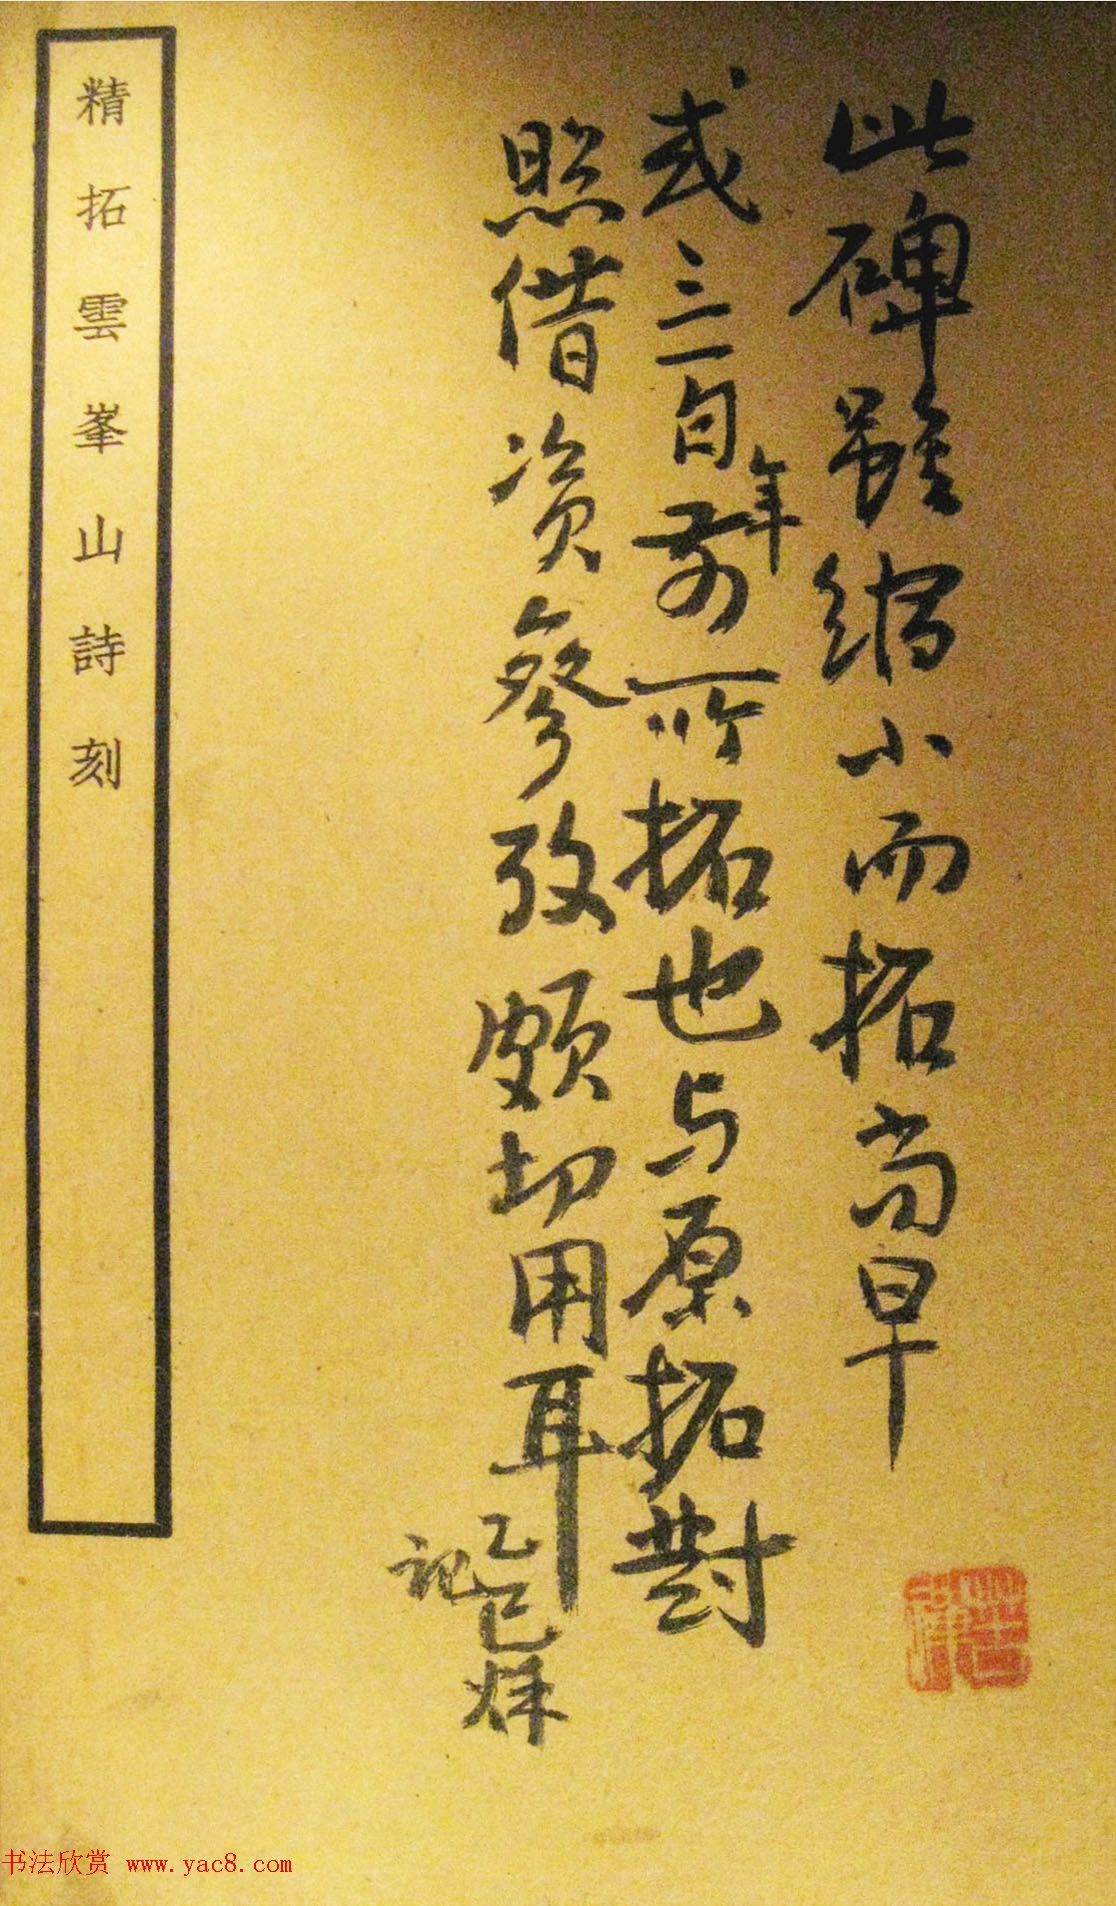 此碑雖縮小而拓尚早
或三百年前所拓也与原拓對
照借资參攷頗切用耳
乙巳秌
記
精拓雲峯山詩刻
书法欣赏 www.yac8.com